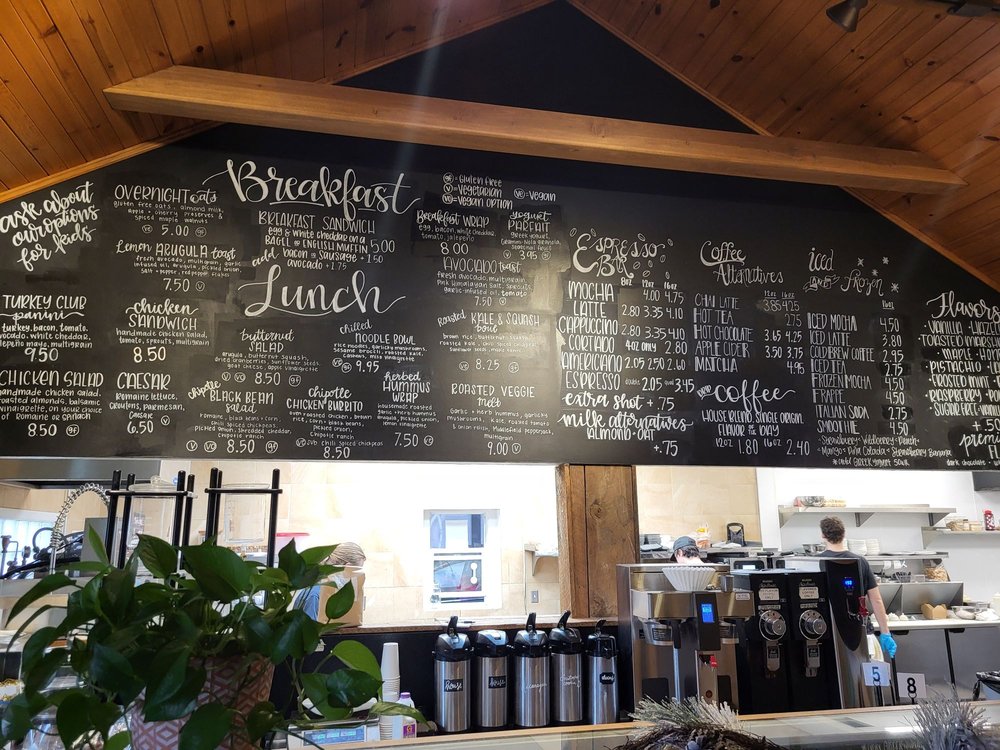 ask about
our options
for kids
OVERNIGHT oats
gluten free oats, almond milk,
apple + cherry preserves &
spiced maple walnuts
5.00 GF
Lemon ARUGULA toast
7.50 V
TURKEY CLUB
panini
turkey, bacon, tomato,
avocado, white cheddar,
multigrain
9.50
chicken
SANDWICH
handmade chicken salad,
tomato, sprouts, multigrain
8.50
CHICKEN SALAD
handmade chicken salad,
roasted almonds, balsamic
vinaigrette, on your choice
of ROMAINE or SPINACH
8.50 GF
CAESAR
romaine lettuce,
croutons, parmesan,
caesar
6.50 V
Breakfast
BREAKFAST SANDWICH
egg & white cheddar on a
BAGEL or ENGLISH MUFFIN 5.00
add BACON or SAUSAGE + 1.50
avocado + 1.75
GF = Gluten Free
V = Vegetarian
VO = Vegan Option
VG = Vegan
Breakfast WRAP
egg, bacon, white cheddar,
tomato, jalapeño
8.00
yogurt
PARFAIT
greek yogurt,
seasonal fruit
V 3.95 GF
AVOCADO toast
fresh avocado, multigrain
Pink Himalayan Salt, sprouts,
garlic-infused oil, tomato
7.50
Lunch
butternut
SALAD
arugula, butternut squash,
dried cranberries, sunflower seeds
goat cheese, apple vinaigrette
V 8.50 GF
chilled
NOODLE BOWL
rice noodles, garlicky mushrooms,
sesame broccoli, roasted kale,
GF 9.95
Roasted KALE & SQUASH
bowl
8.25 GF
chipotle
BLACK BEAN
salad
romaine, black beans, corn
chili spiced chickpeas
pickled onion, shredded cheddar,
chipotle ranch
8.50 GF
chipotle
CHICKEN BURRITO
oven roasted chicken, brown
rice, corn + black beans,
pickled onion,
chipotle ranch
sub chili spiced chickpeas
8.50
herbed
HUMMUS
WRAP
7.50
ROASTED VEGGIE
melt
garlic + herb hummus, garlicky
mushrooms, kale, roasted tomato
& onion relish, Middlefield pepperjack,
multigrain
9.00 V
Espresso
BAR
8oz 12oz 16oz
MOCHA 4.00 4.75
LATTE 2.80 3.35 4.10
CAPPUCCINO 2.80 3.35 4.10
CORTADO 4oz only 2.80
AMERICANO 2.05 2.50 2.60
ESPRESSO double 2.05 quad 3.45
extra shot + .75
milk alternatives
ALMOND • OAT + .75
Coffee
Alternatives
12oz 16oz
CHAI LATTE 3.85 4.25
HOT TEA 2.75
HOT CHOCOLATE 3.65 4.25
APPLE CIDER 3.50 3.75
MATCHA 4.95
drip coffee
HOUSE BLEND, SINGLE ORIGIN
FLAVOR of the DAY
12oz 1.80 16oz 2.40
iced
frozen
ICED MOCHA 4.50
ICED LATTE 3.80
COLDBREW COFFEE 2.95
ICED TEA 2.75
FROZEN MOCHA 4.50
FRAPPE 4.50
ITALIAN SODA 2.75
SMOOTHIE 4.50
• Strawberry • Wildberry • Peach •
Mango • Piña Colada • Strawberry Banana
Flavors
VANILLA
TOASTED MARSH
MAPLE
PISTACHIO
FROSTED MINT
RASPBERRY
SUGAR FREE VANILLA
+ .50
dark chocolate
house
5
8